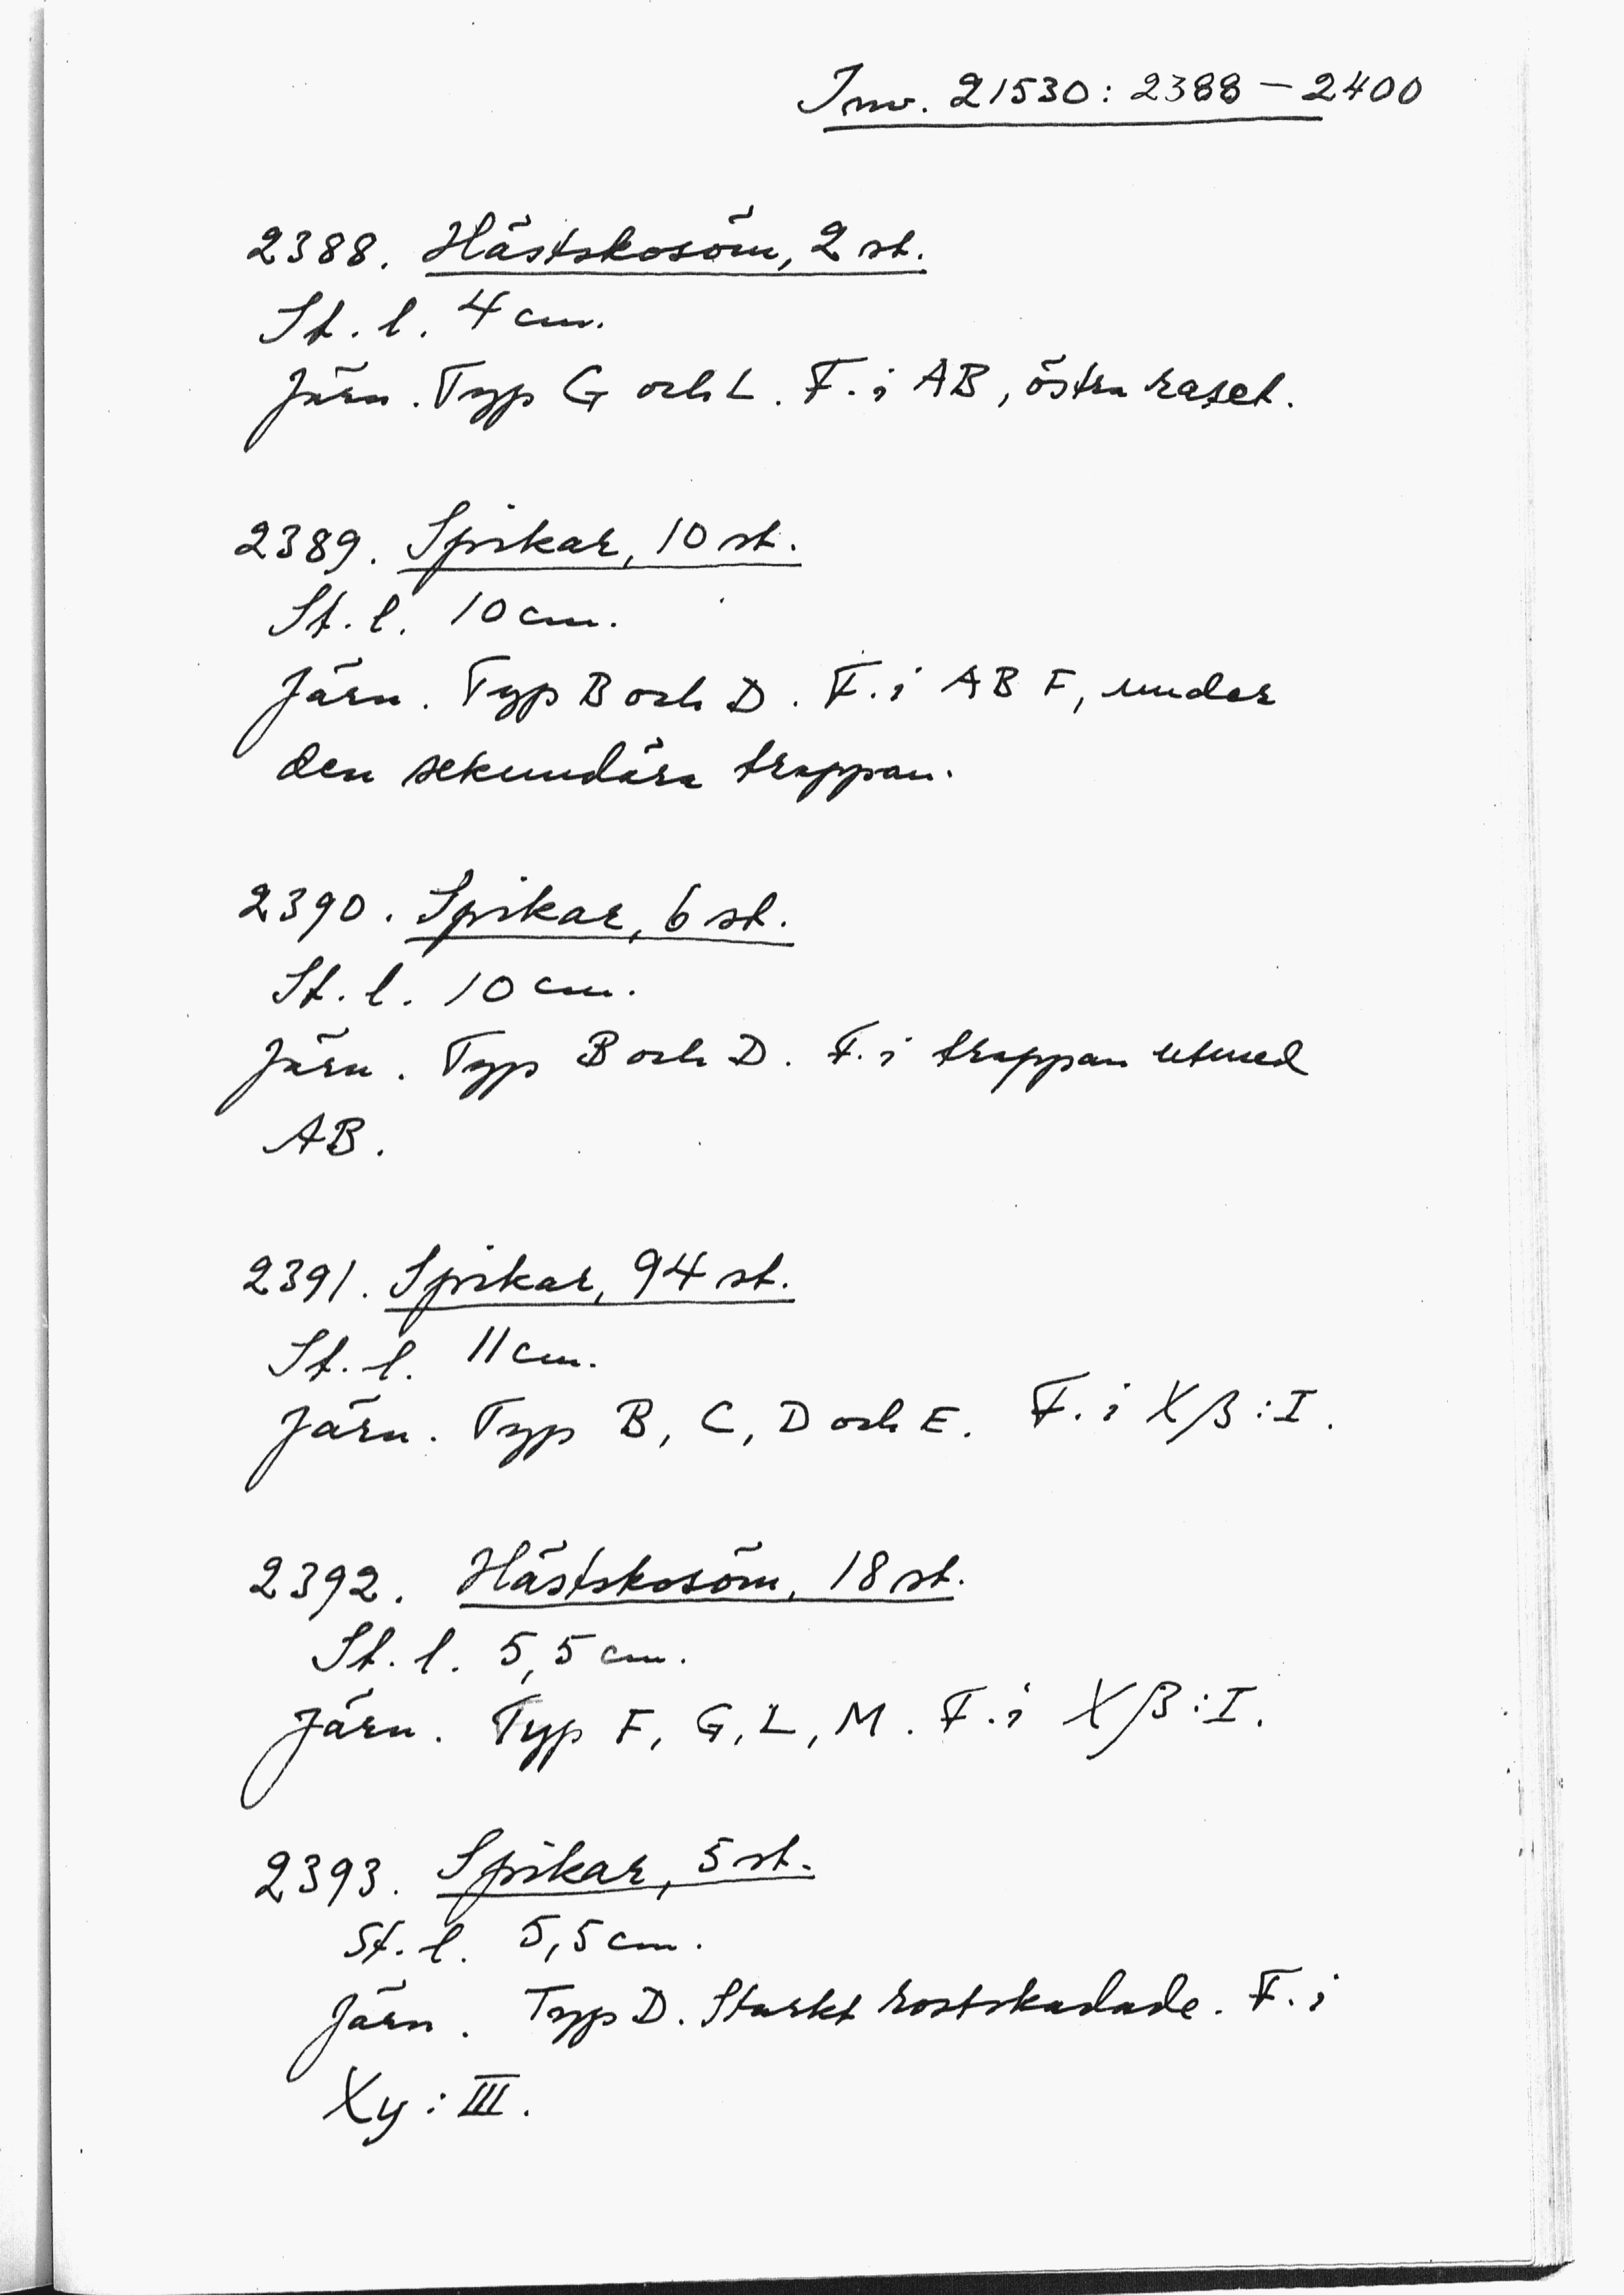 Inv. 21530: 2388 – 2400
2388. Hästskosöm, 2 st.
St. l. 4 cm.
Järn. Typ G och L. F. i AB, östra raset.
2389. Spikar, 10 st.
St. l. 10 cm.
Järn. Typ B och D. F. i ABF, under
den sekundära trappan.
2390. Spikar, 6 st.
St. l. 10 cm.
Järn. Typ B och D. F. i trappan utmed
AB.
2391. Spikar, 94 st.
St. l. 11 cm.
Järn. Typ B, C, D och E. F. i Xβ:I.
2392. Hästskosöm, 18 st.
St. l. 5,5 cm.
Järn. Typ F, G, L, M. F. i Xβ:I.
2393. Spikar, 5 st.
St. l. 5,5 cm.
Järn. Typ D. Starkt rostskadade. F. i
Xy: III.